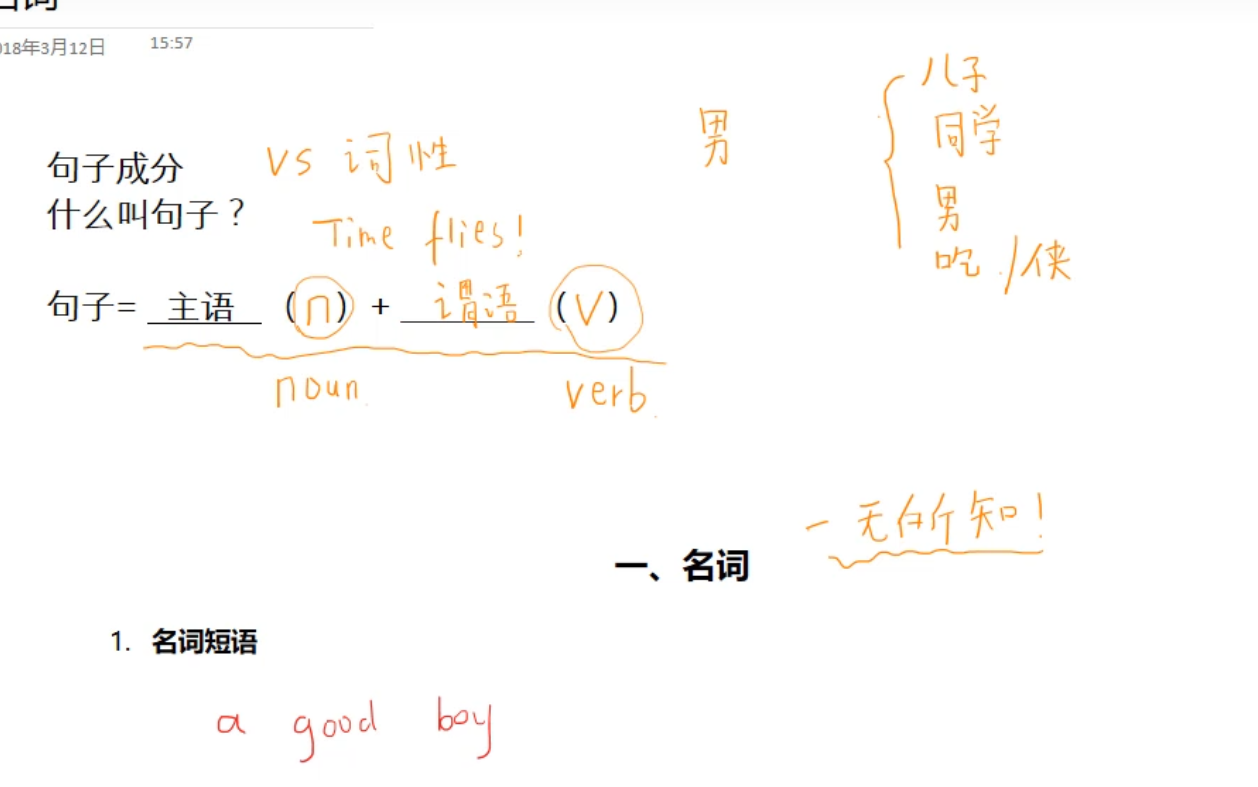 018年3月12日 15:57
句子成分 vs 词性
什么叫句子？
Time flies!
句子= 主语 (n) + 谓语 (V)
noun verb
男
儿子
同学
男
吃 / 侠
一无所知!
一、名词
1. 名词短语
a good boy